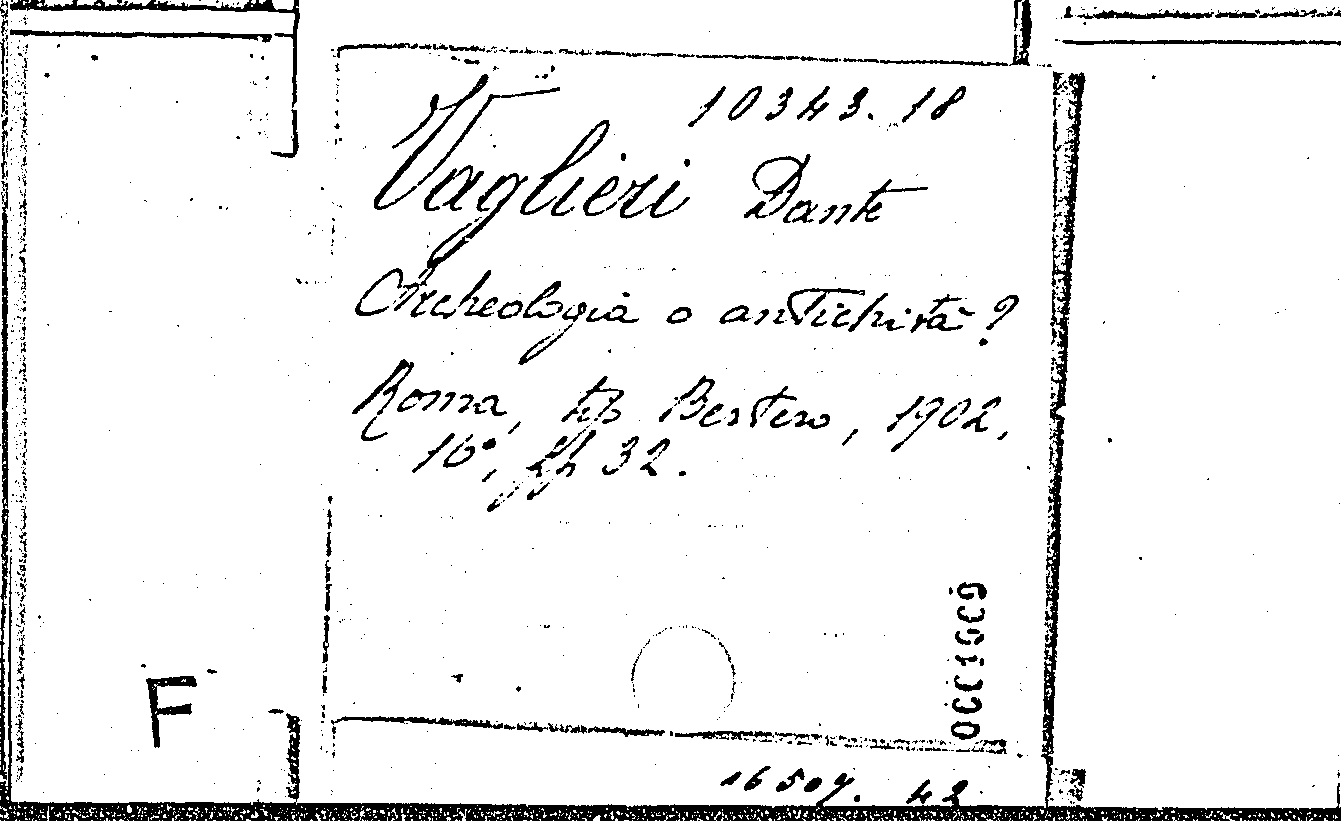 10343.18
Vaglieri Dante
Archeologia o antichità?
Roma, tip Bertero, 1902,
16°, pp 32.
F
16507. 42